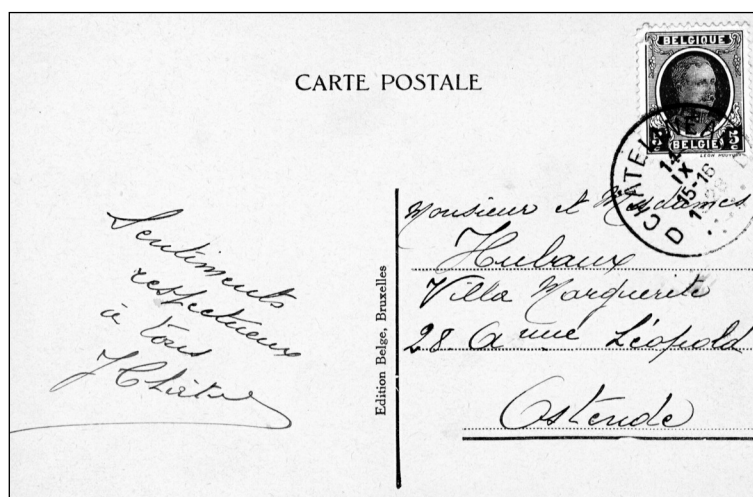 CARTE POSTALE
BELGIQUE
5 5
BELGIË
CHATEL
14
IX
15-16
D
Sentiments
respectueux
à tous
Edition Belge, Bruxelles
Monsieur et Mesdames
Hubaux
Villa Marguerite
28 Léopold
Ostende